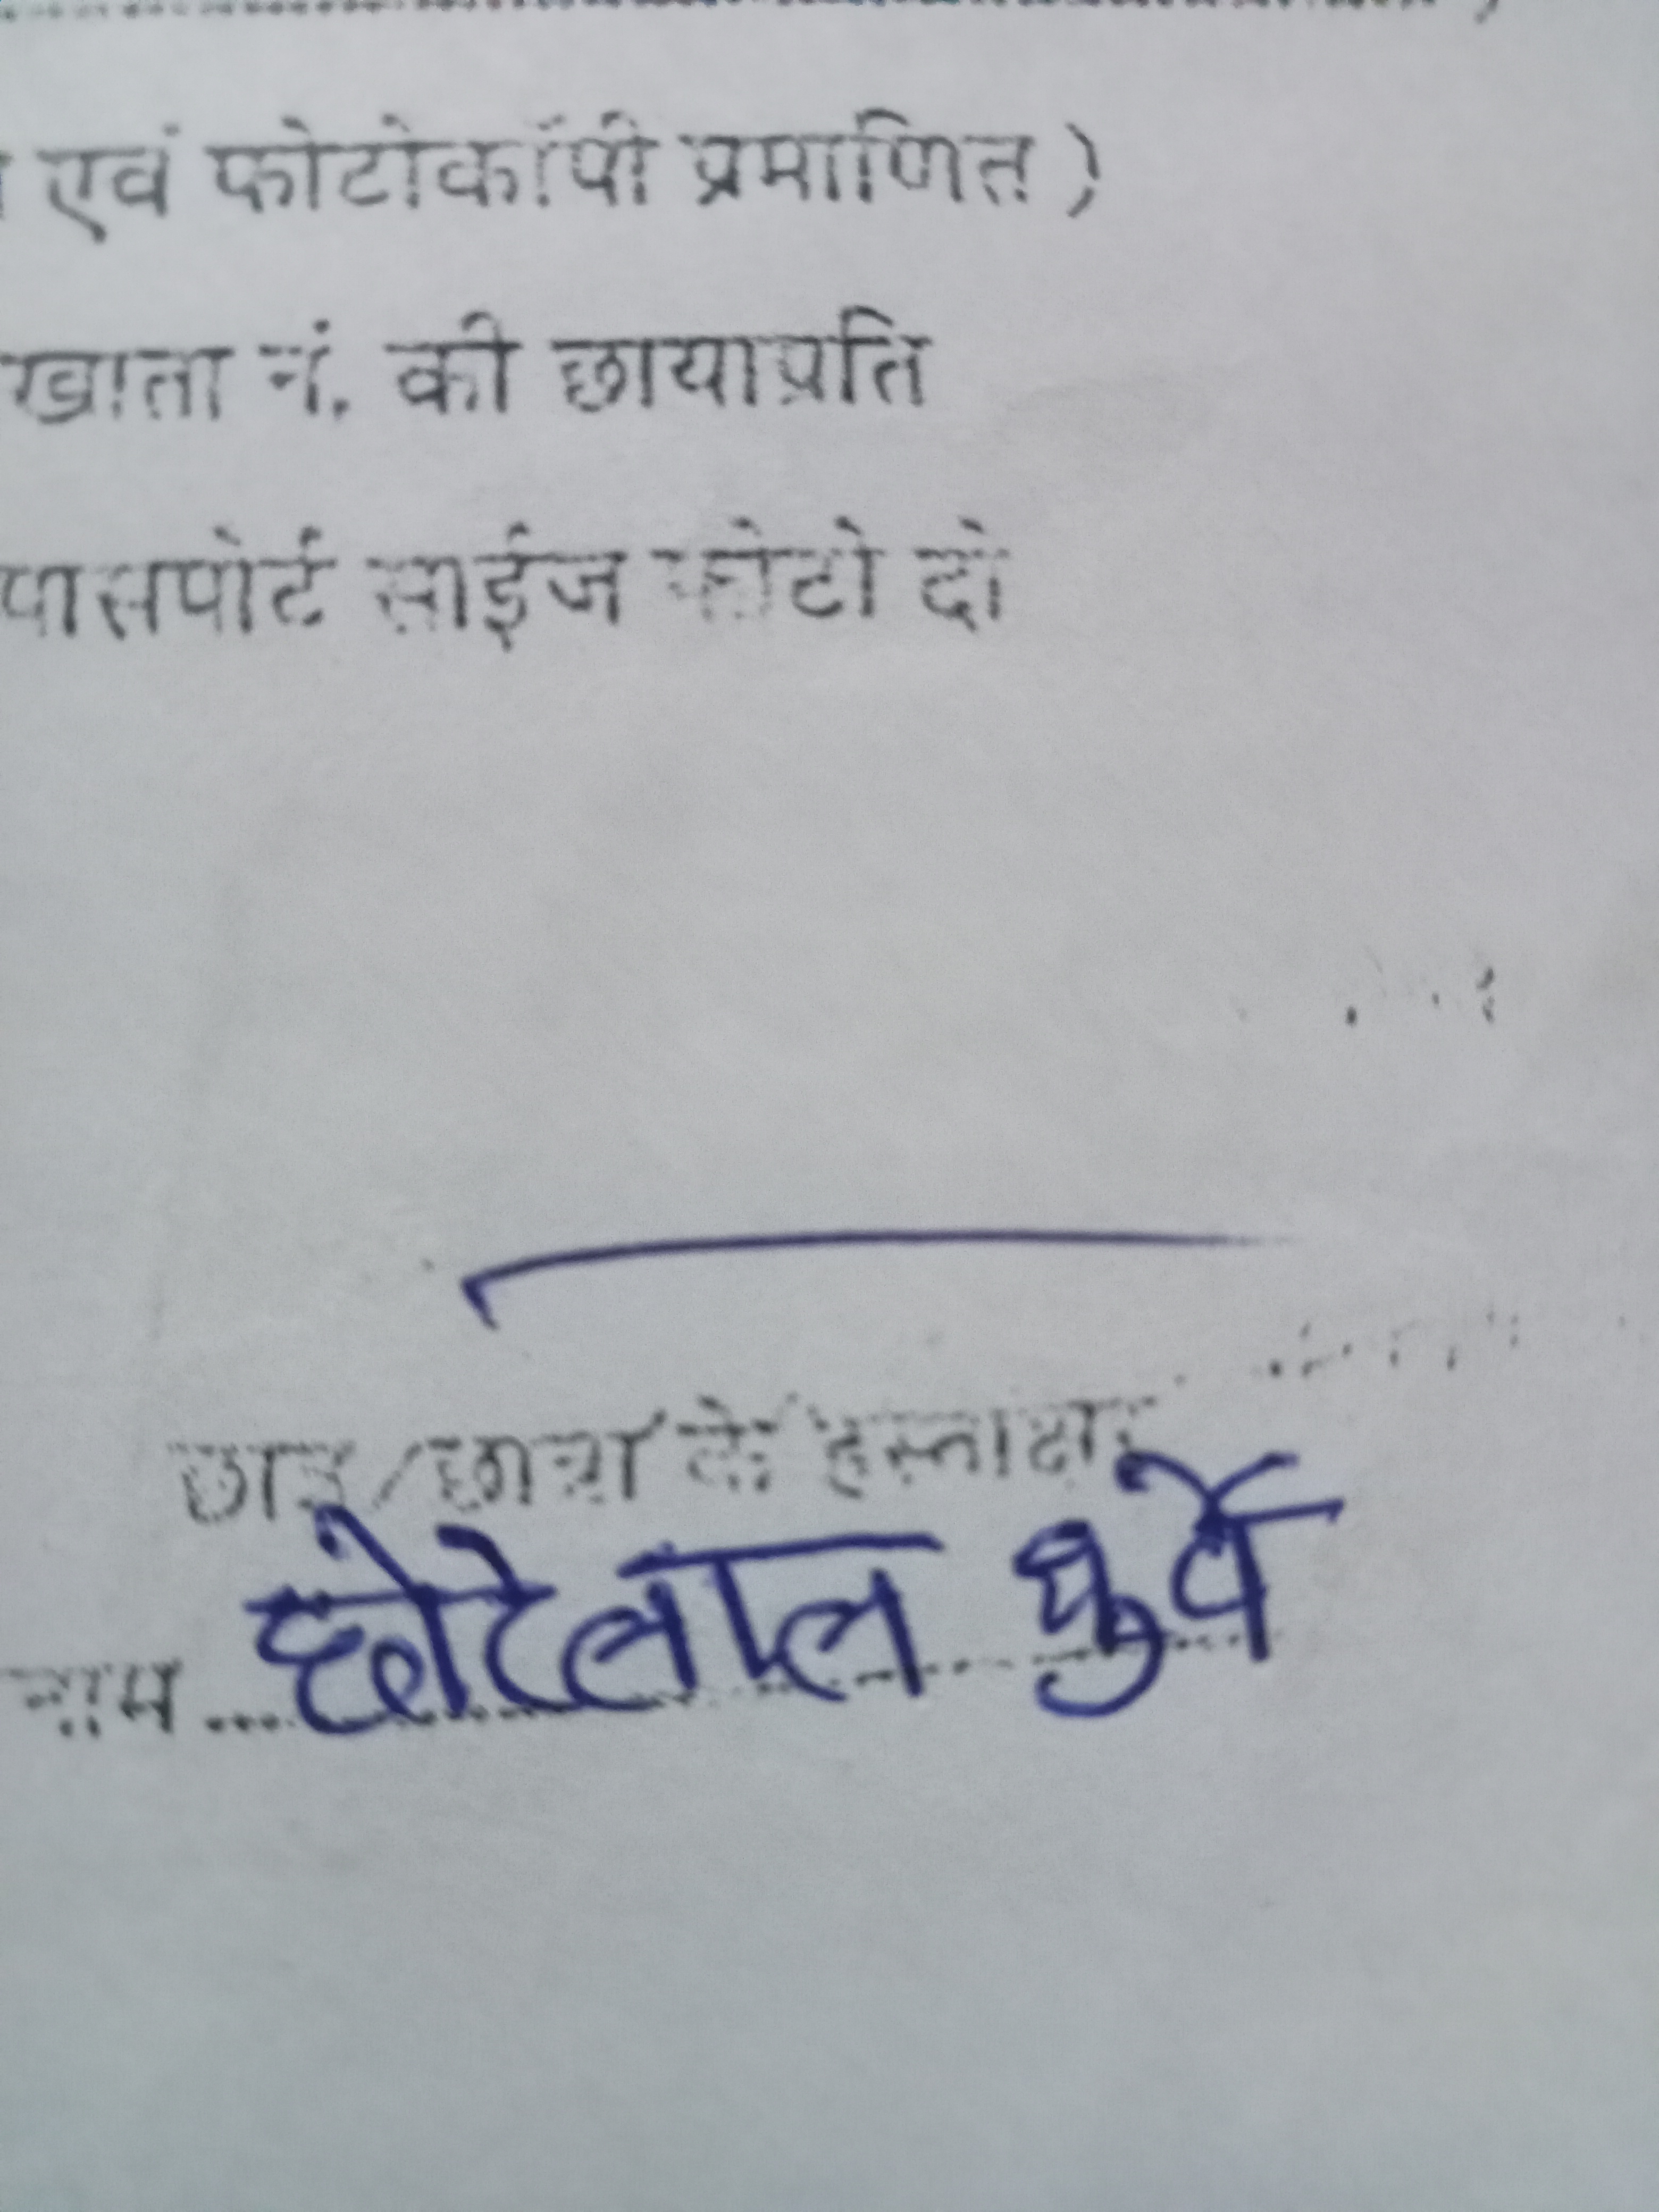 एवं फोटोकॉपी प्रमाणित)
खाता नं. की छायाप्रति
पासपोर्ट साईज फोटो दो
छात्र/छात्रा के हस्ताक्षर
नाम ... छोटेलाल धुर्वे